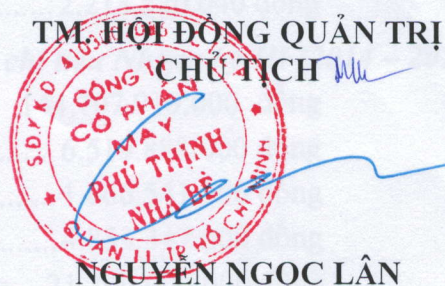 TM. HỘI ĐỒNG QUẢN TRỊ
CHỦ TỊCH
S.Đ.Y.K.D: 4103
CÔNG TY
CỔ PHẦN
MAY
PHÚ THỊNH
NHÀ BÈ
QUẬN 11 TP HỒ CHÍ MINH
NGUYỄN NGỌC LÂN